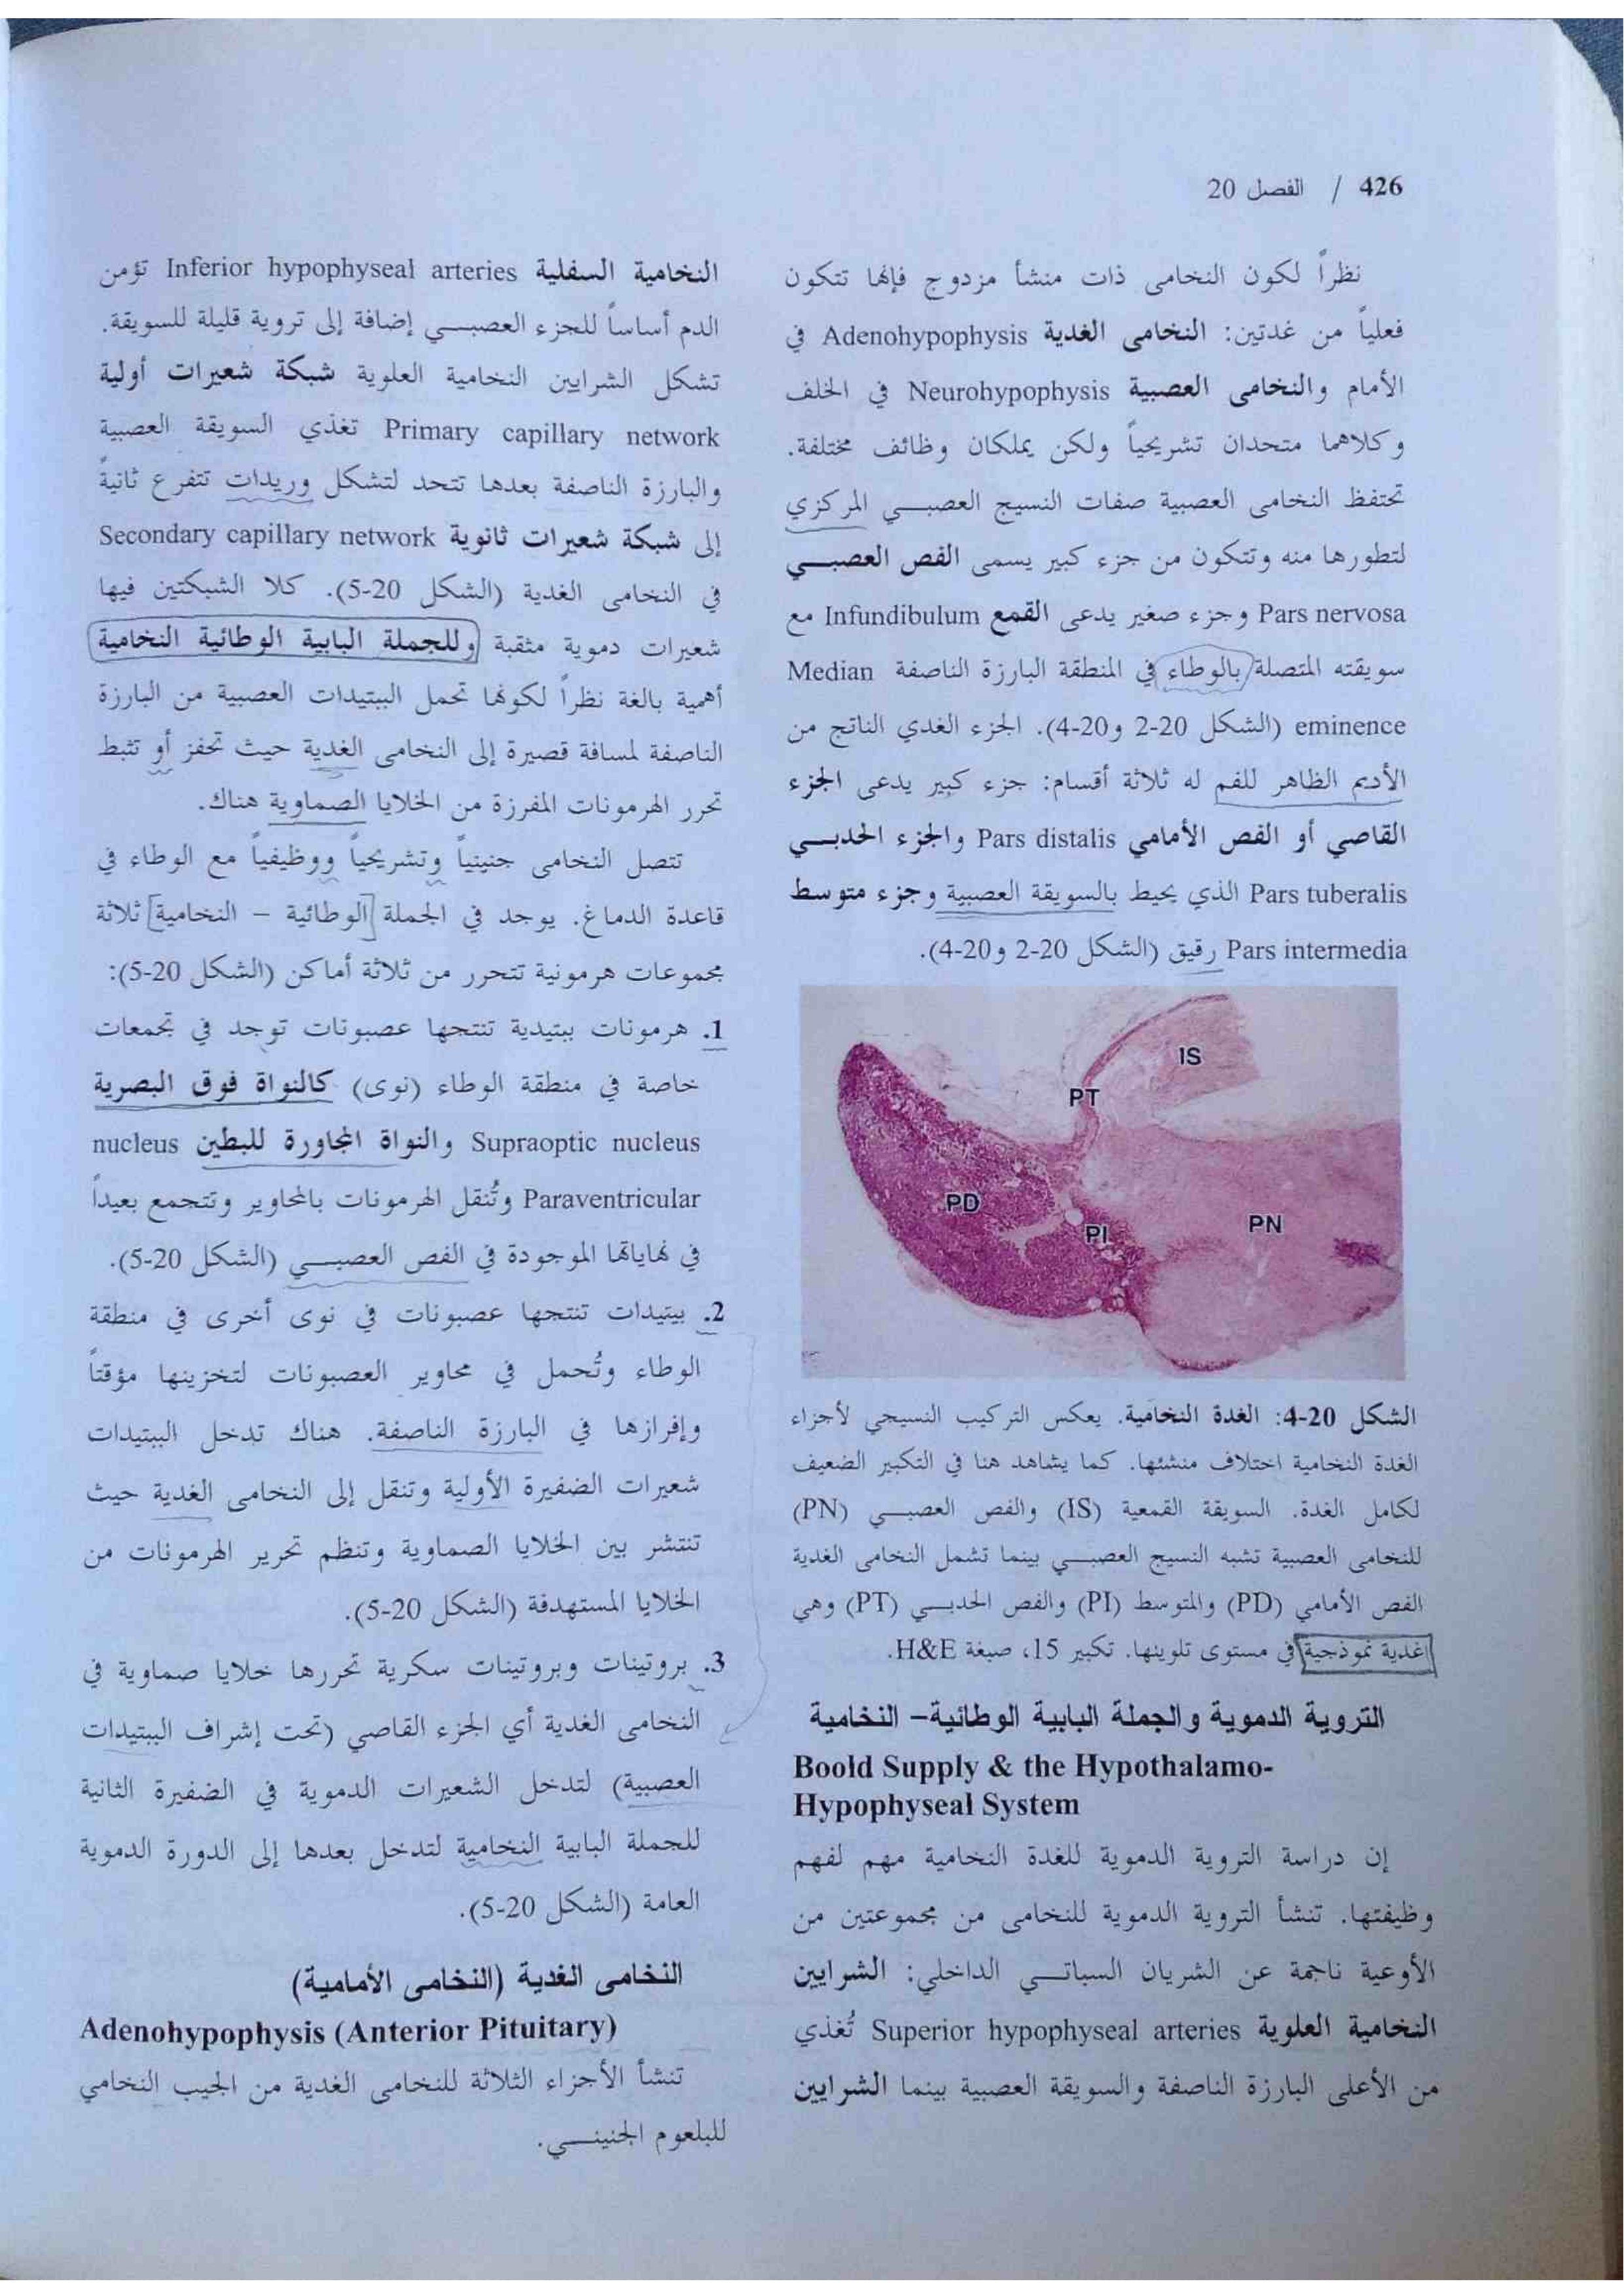 426 / الفصل 20
نظراً لكون النخامى ذات منشأ مزدوج فإنها تتكون
فعلياً من غدتين: النخامى الغدية Adenohypophysis في
الأمام والنخامى العصبية Neurohypophysis في الخلف
وكلاهما متحدان تشريحياً ولكن يملكان وظائف مختلفة.
تحتفظ النخامى العصبية صفات النسيج العصبي المركزي
لتطورها منه وتتكون من جزء كبير يسمى الفص العصبي
Pars nervosa وجزء صغير يدعى القمع Infundibulum مع
سويقته المتصلة بالوطاء في المنطقة البارزة الناصفة Median
eminence (الشكل 20-2 و20-4). الجزء الغدي الناتج من
الأديم الظاهر للفم له ثلاثة أقسام: جزء كبير يدعى الجزء
القاصي أو الفص الأمامي Pars distalis والجزء الحدبي
Pars tuberalis الذي يحيط بالسويقة العصبية وجزء متوسط
Pars intermedia رقيق (الشكل 20-2 و20-4).
IS
PT
PD
PI
PN
الشكل 20-4: الغدة النخامية. يعكس التركيب النسيجي لأجزاء
الغدة النخامية اختلاف منشئها. كما يشاهد هنا في التكبير الضعيف
لكامل الغدة. السويقة القمعية (IS) والفص العصبي (PN)
للنخامى العصبية تشبه النسيج العصبي بينما تشمل النخامى الغدية
الفص الأمامي (PD) والمتوسط (PI) والفص الحدبي (PT) وهي
غدية نموذجية في مستوى تلوينها. تكبير 15، صبغة H&E.
التروية الدموية والجملة البابية الوطائية- النخامية
Boold Supply & the Hypothalamo-
Hypophyseal System
إن دراسة التروية الدموية للغدة النخامية مهم لفهم
وظيفتها. تنشأ التروية الدموية للنخامى من مجموعتين من
الأوعية ناجمة عن الشريان السباتي الداخلي: الشرايين
النخامية العلوية Superior hypophyseal arteries تُغذي
من الأعلى البارزة الناصفة والسويقة العصبية بينما الشرايين
النخامية السفلية Inferior hypophyseal arteries تؤمن
الدم أساساً للجزء العصبي إضافة إلى تروية قليلة للسويقة.
تشكل الشرايين النخامية العلوية شبكة شعيرات أولية
Primary capillary network تغذي السويقة العصبية
والبارزة الناصفة بعدها تتحد لتشكل وريدات تتفرع ثانيةً
إلى شبكة شعيرات ثانوية Secondary capillary network
في النخامى الغدية (الشكل 20-5). كلا الشبكتين فيها
شعيرات دموية مثقبة وللجملة البابية الوطائية النخامية
أهمية بالغة نظراً لكونها تحمل الببتيدات العصبية من البارزة
الناصفة لمسافة قصيرة إلى النخامى الغدية حيث تحفز أو تثبط
تحرر الهرمونات المفرزة من الخلايا الصماوية هناك.
تتصل النخامى جنينياً وتشريحياً ووظيفياً مع الوطاء في
قاعدة الدماغ. يوجد في الجملة الوطائية – النخامية ثلاثة
مجموعات هرمونية تتحرر من ثلاثة أماكن (الشكل 20-5):
1. هرمونات ببتيدية تنتجها عصبونات توجد في تجمعات
خاصة في منطقة الوطاء (نوى) كالنواة فوق البصرية
Supraoptic nucleus والنواة المجاورة للبطين nucleus
Paraventricular وتُنقل الهرمونات بالمحاوير وتتجمع بعيداً
في نهاياتها الموجودة في الفص العصبي (الشكل 20-5).
2. ببتيدات تنتجها عصبونات في نوى أخرى في منطقة
الوطاء وتُحمل في محاوير العصبونات لتخزينها مؤقتاً
وإفرازها في البارزة الناصفة. هناك تدخل الببتيدات
شعيرات الضفيرة الأولية وتنقل إلى النخامى الغدية حيث
تنتشر بين الخلايا الصماوية وتنظم تحرير الهرمونات من
الخلايا المستهدفة (الشكل 20-5).
3. بروتينات وبروتينات سكرية تحررها خلايا صماوية في
النخامى الغدية أي الجزء القاصي (تحت إشراف الببتيدات
العصبية) لتدخل الشعيرات الدموية في الضفيرة الثانية
للجملة البابية النخامية لتدخل بعدها إلى الدورة الدموية
العامة (الشكل 20-5).
النخامى الغدية (النخامى الأمامية)
Adenohypophysis (Anterior Pituitary)
تنشأ الأجزاء الثلاثة للنخامى الغدية من الجيب النخامي
للبلعوم الجنيني.